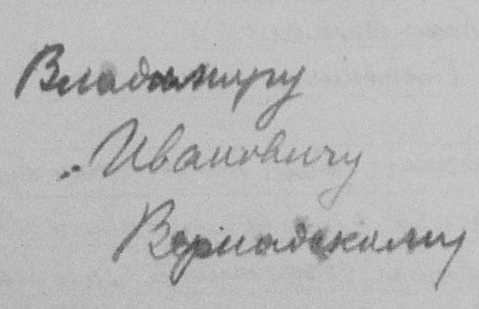 Владимиру
Ивановичу
Вернадскому